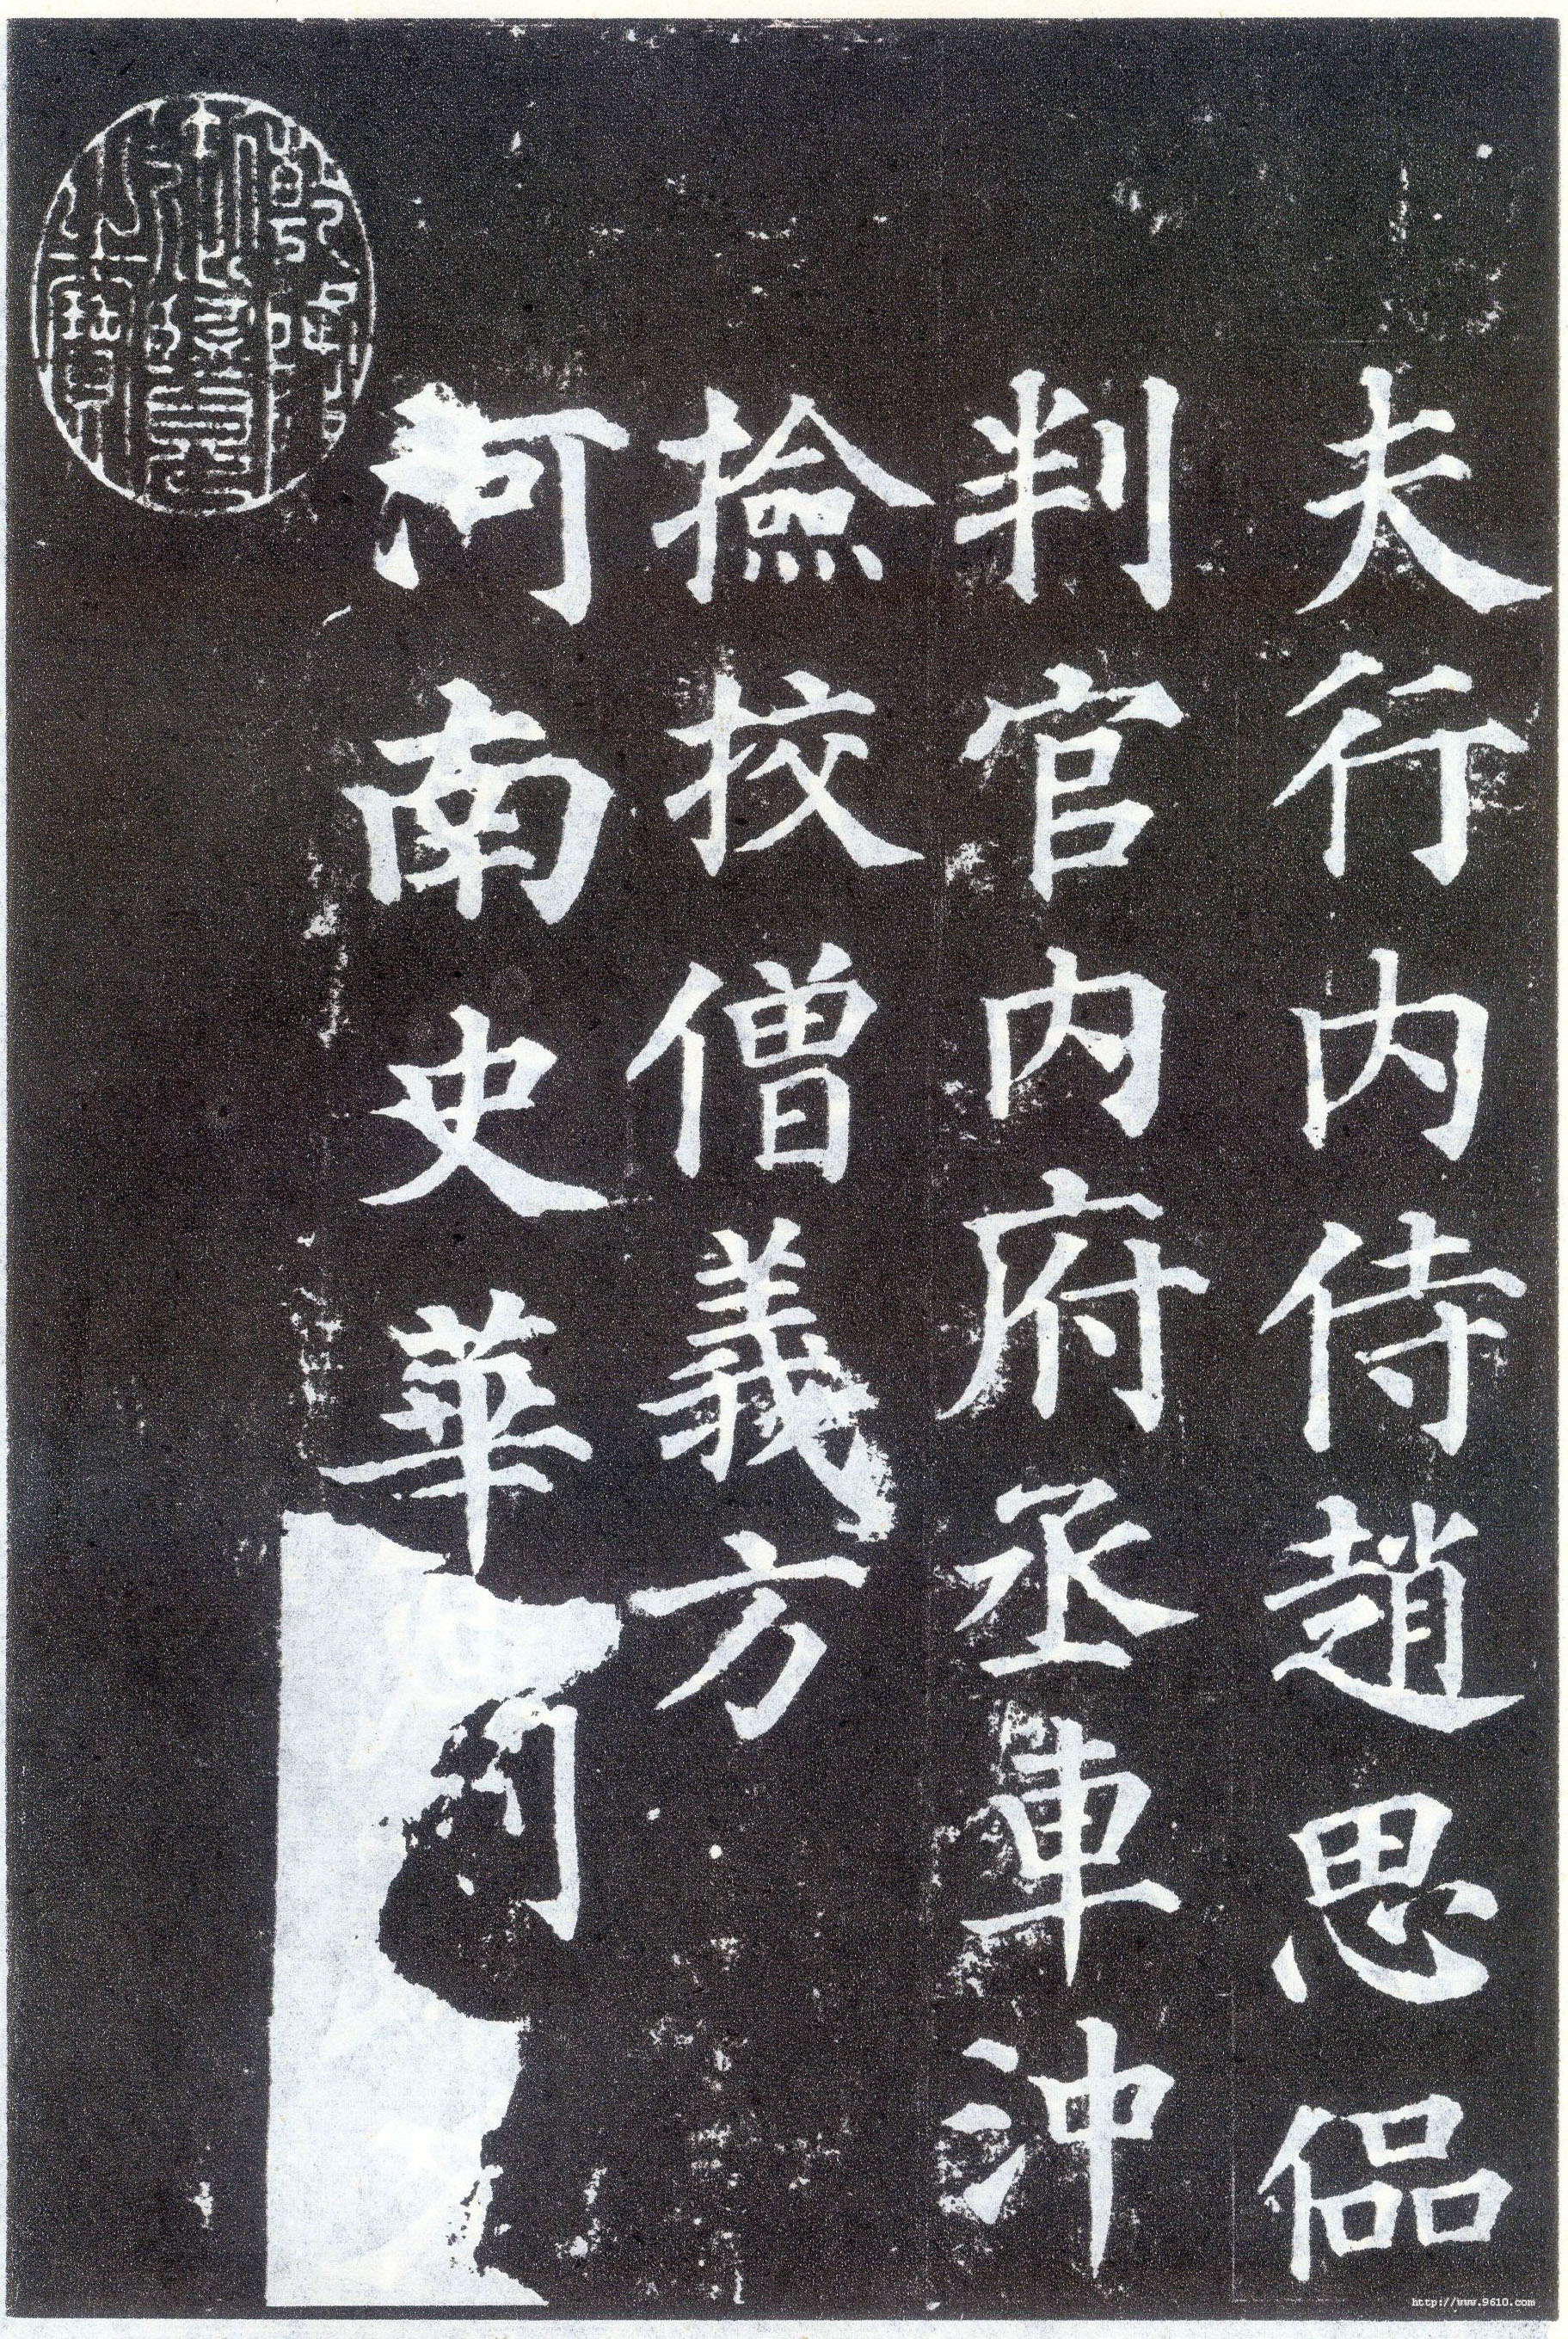 夫行内侍趙思侶
判官内府丞車沖
撿挍僧義方
河南史華刻
http://www.9610.com